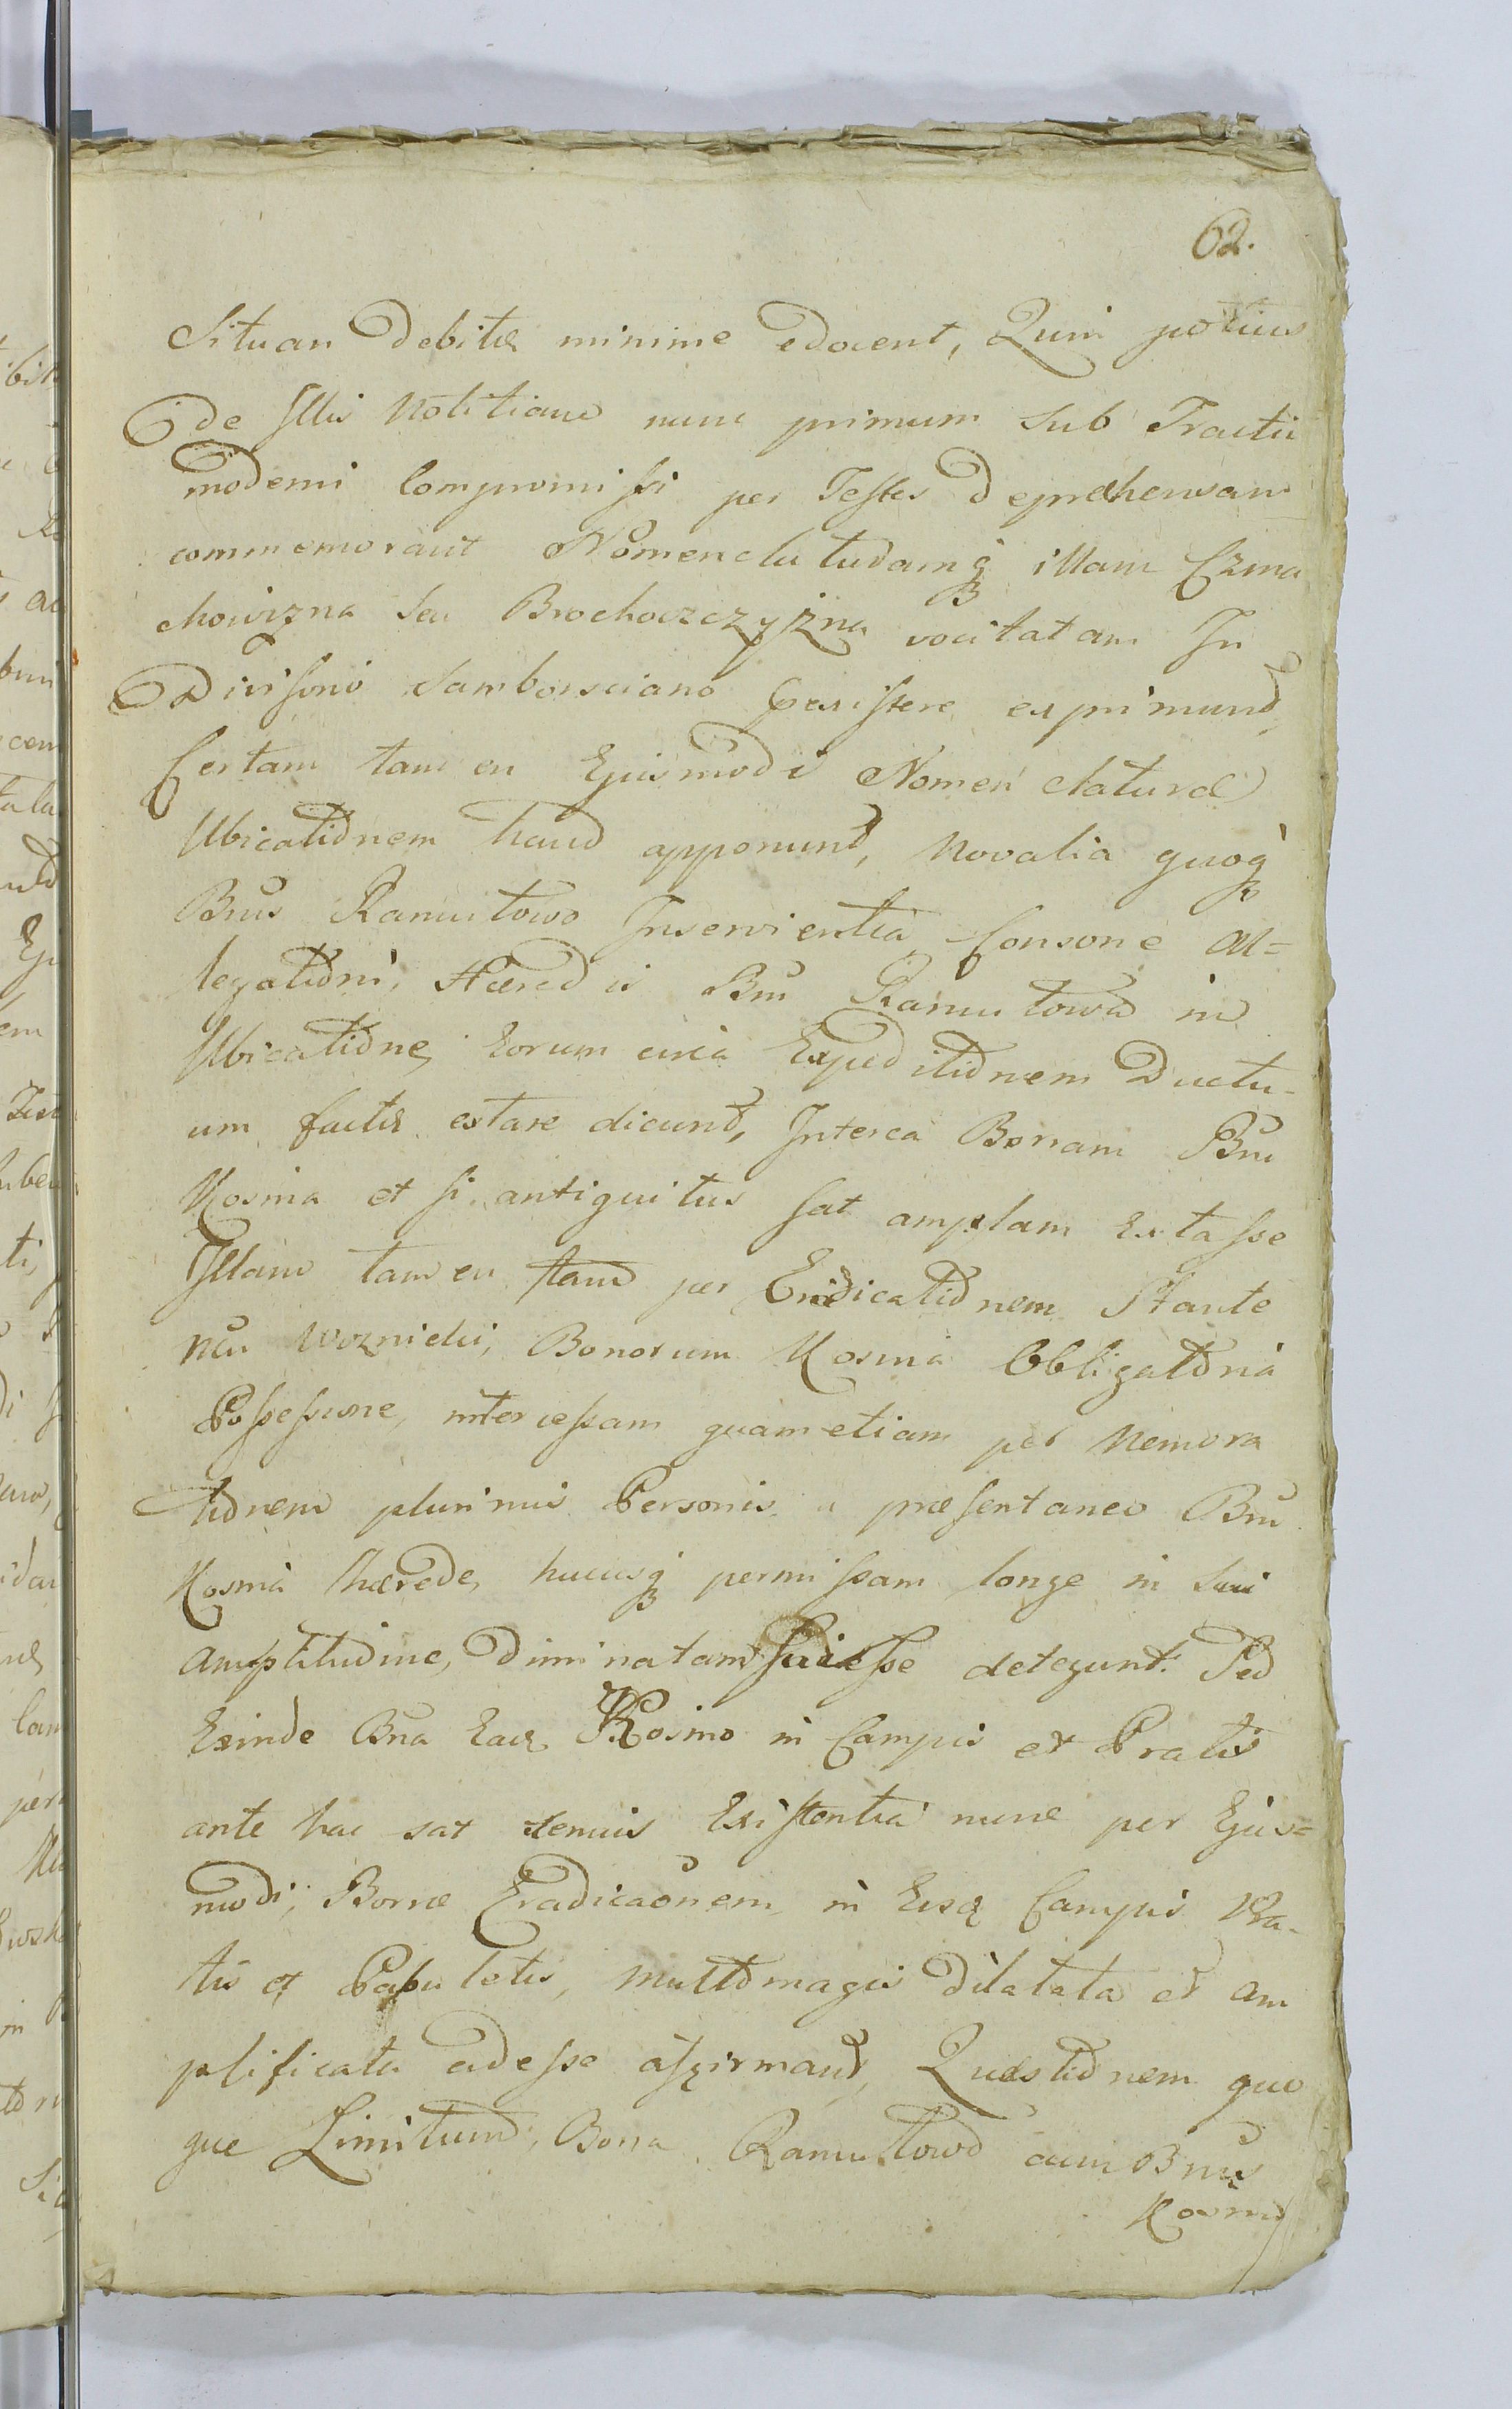 62.
Situan debite minime edocent, Quin potius
de Illis Notitiam nunc primum sub Tractu
moderni Compromissi per Testes deprehensam
commemorant Nomenclatudamq illam Czma
chowizna seu Brochoczczyzna vocitatam In
Divisorio Samborsciano existere exprimund,
Certam tamen Ejusmodi Nomenclaturæ
Ubicationem haud apponund, Novalia quoq
Bnis Ramutowo Inservientia Consone al=
legationi, Hæredis Bnu Ramutowa in
Ubicatione, Eorum circa Expeditionem Ductu-
um factæ extare dicund, Interea Borram Bnu
Kosma et si antiquitus sat amplam Extasse
Illam tamen tam per Eradicationem Stante
Woznicki, Bonorum Kosma Obligatoria
Possessione, intercessam quam etiam per Nemora
tionem plurimis Personis a præsentaneo Bnu
Kosma hærede, hucusq permissam longe in sui
amplitudine, diminatam fuisse detegunt. Sed
Exinde Bna Kosmo in Campis et Pratis
ante hac sat tenuis Existentia nunc per Ejus=
modi, Borræ Eradicaonem in Campis Pra-
tis et Pabuletis, multo magis dilatata et am
plificata adesse affirmant, Questionem quo
que Limitum, Bona Ramultowo cum Bnis
Kosmo